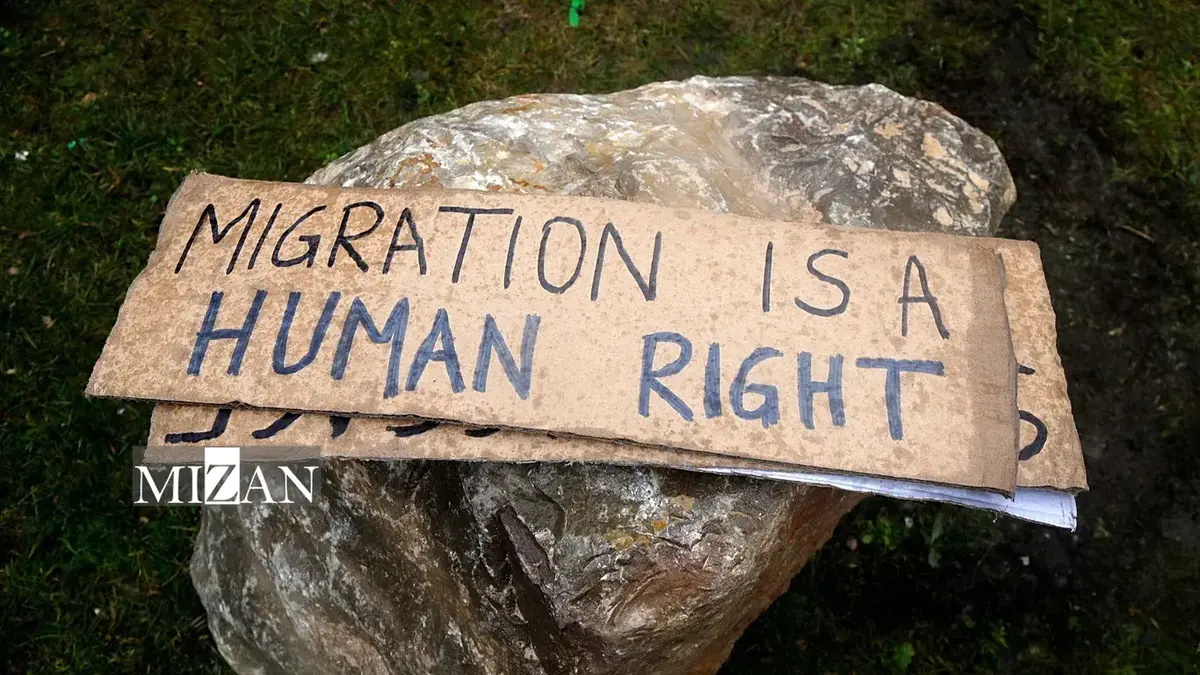 MIGRATION IS A
HUMAN RIGHT
MIZAN